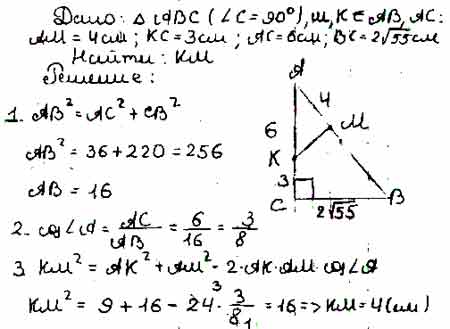 Дано: △ ABC (∠C = 90°), M, K ∈ AB, AC:
AM = 4 см; KC = 3 см; AC = 6 см; BC = 2√55 см
Найти: KM
Решение:
1. AB² = AC² + CB²
AB² = 36 + 220 = 256
AB = 16
2. cos∠A = AC/AB = 6/16 = 3/8
3. KM² = AK² + AM² - 2·AK·AM·cos∠A
KM² = 9 + 16 - 24³·3/8₁ = 16 => KM = 4 (см)
A
4
M
6
K
3
C
2√55
B